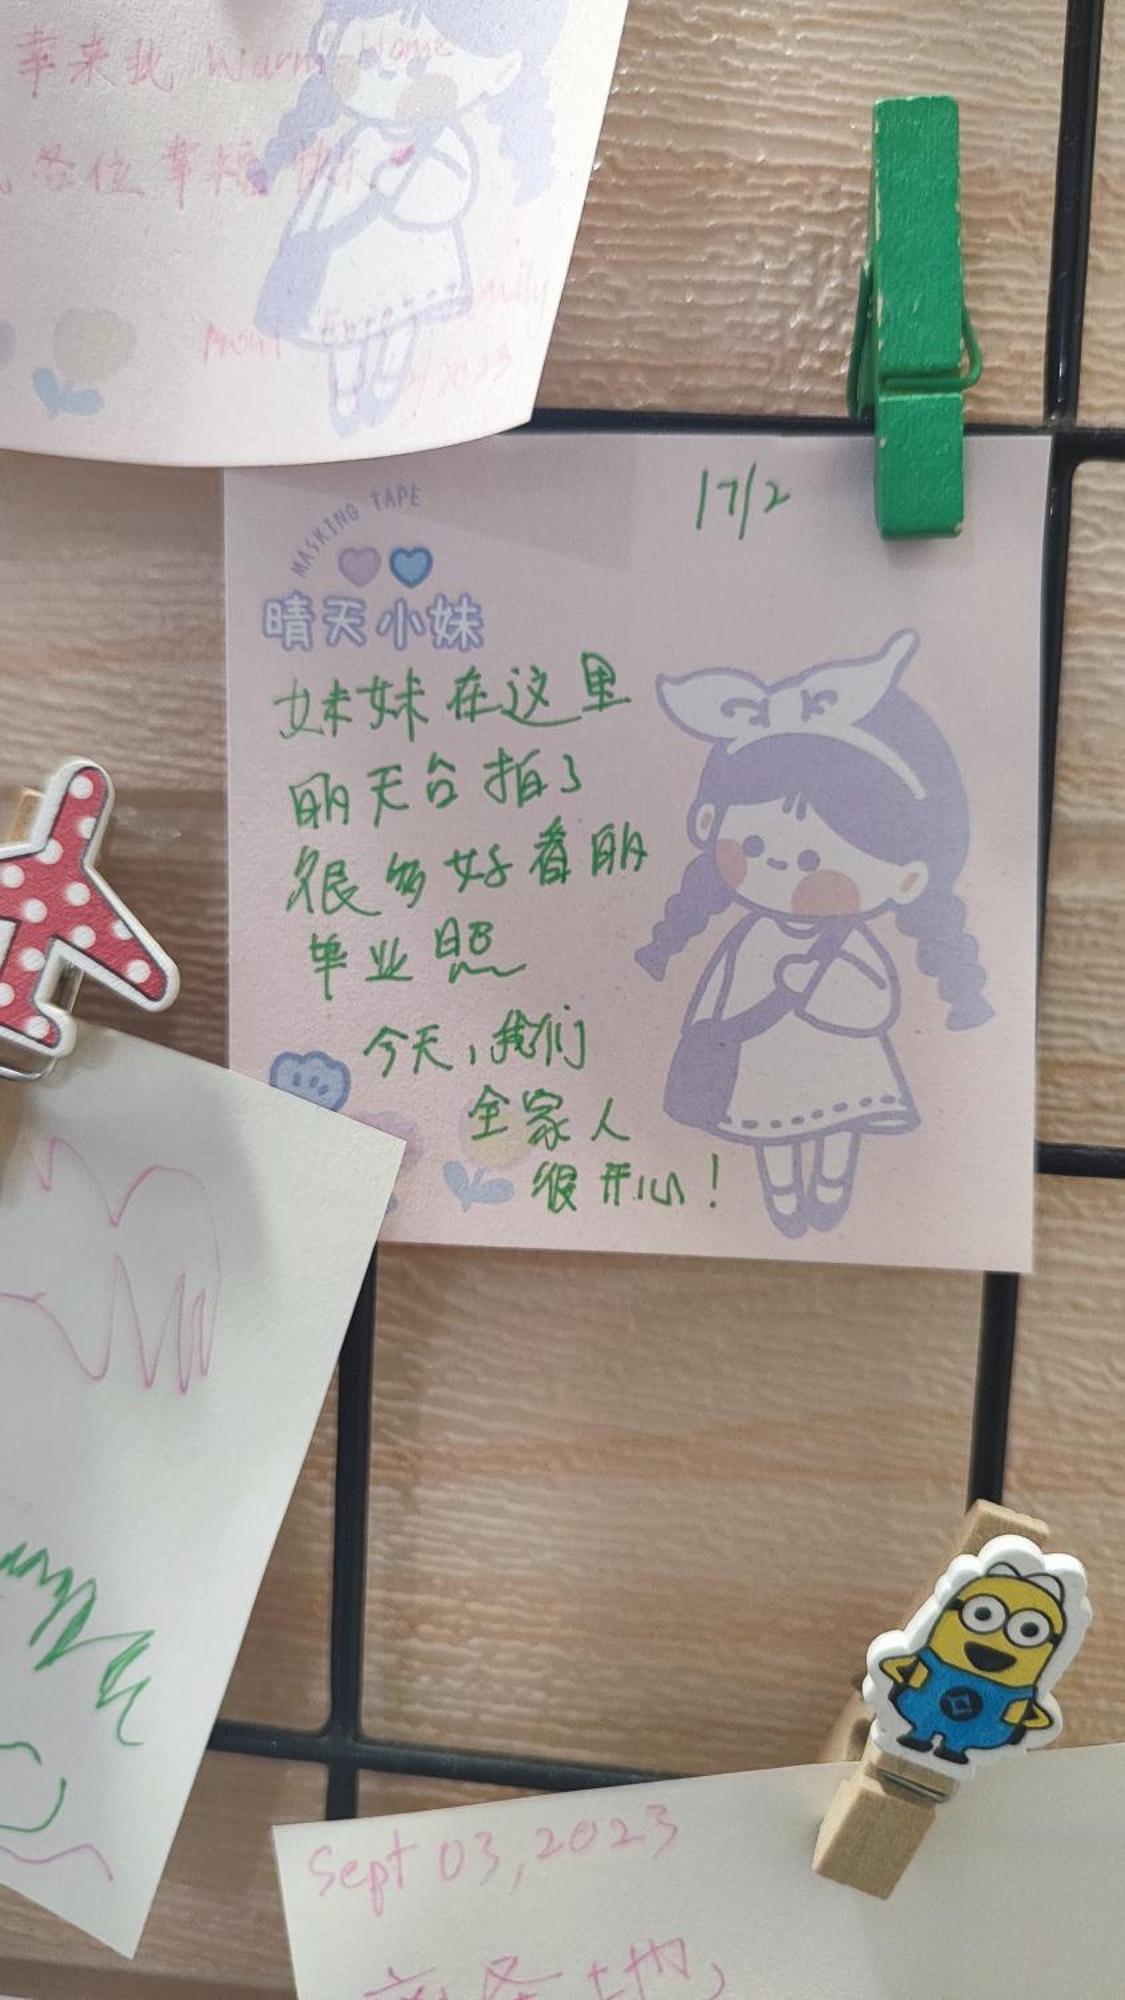 幸来此, Warm Home
各位幸福快乐
2023
17/2
MASKING TAPE
晴天小妹
妹妹在这里
的天台拍了
很多好看的
毕业照
今天,我们
全家人
很开心!
Sept 03, 2023